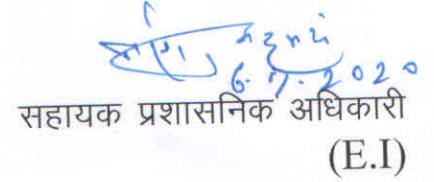 6.7.2020
सहायक प्रशासनिक अधिकारी
(E.I)